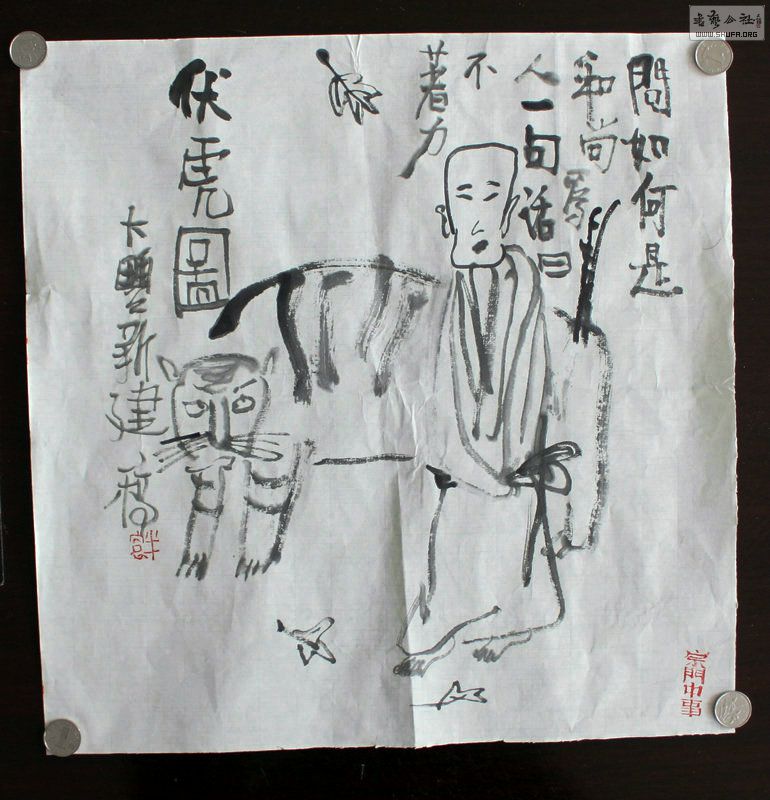 問如何是
和尚為
人一句話曰
不
著力
伏虎圖
大豐新建稿
宗門中事
書藝公社
WWW.SHUFA.ORG